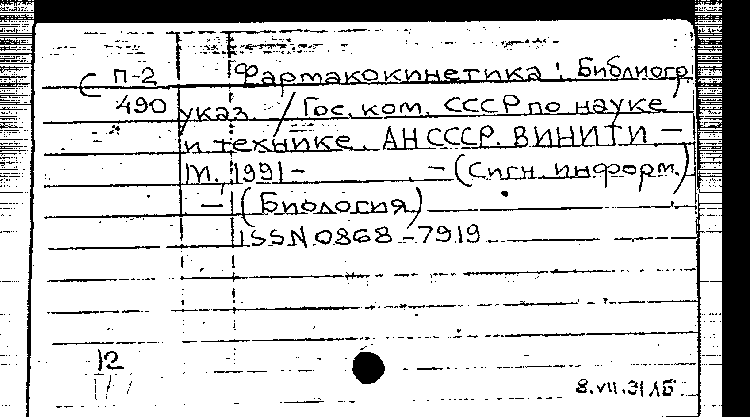 С П-2 Фармакокинетика : Библиогр.
490 указ. / Гос. ком. СССР по науке
и технике. АН СССР. ВИНИТИ. –
М., 1991 – . – (Сигн. информ.)
– (Биология)
ISSN 0868-7919
12
8.VII.31 ЛБ